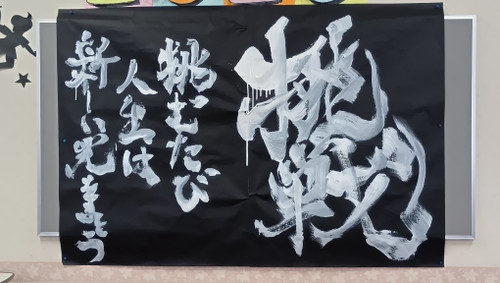 挑戦
挑むたび
人生は
新しい光をまとう